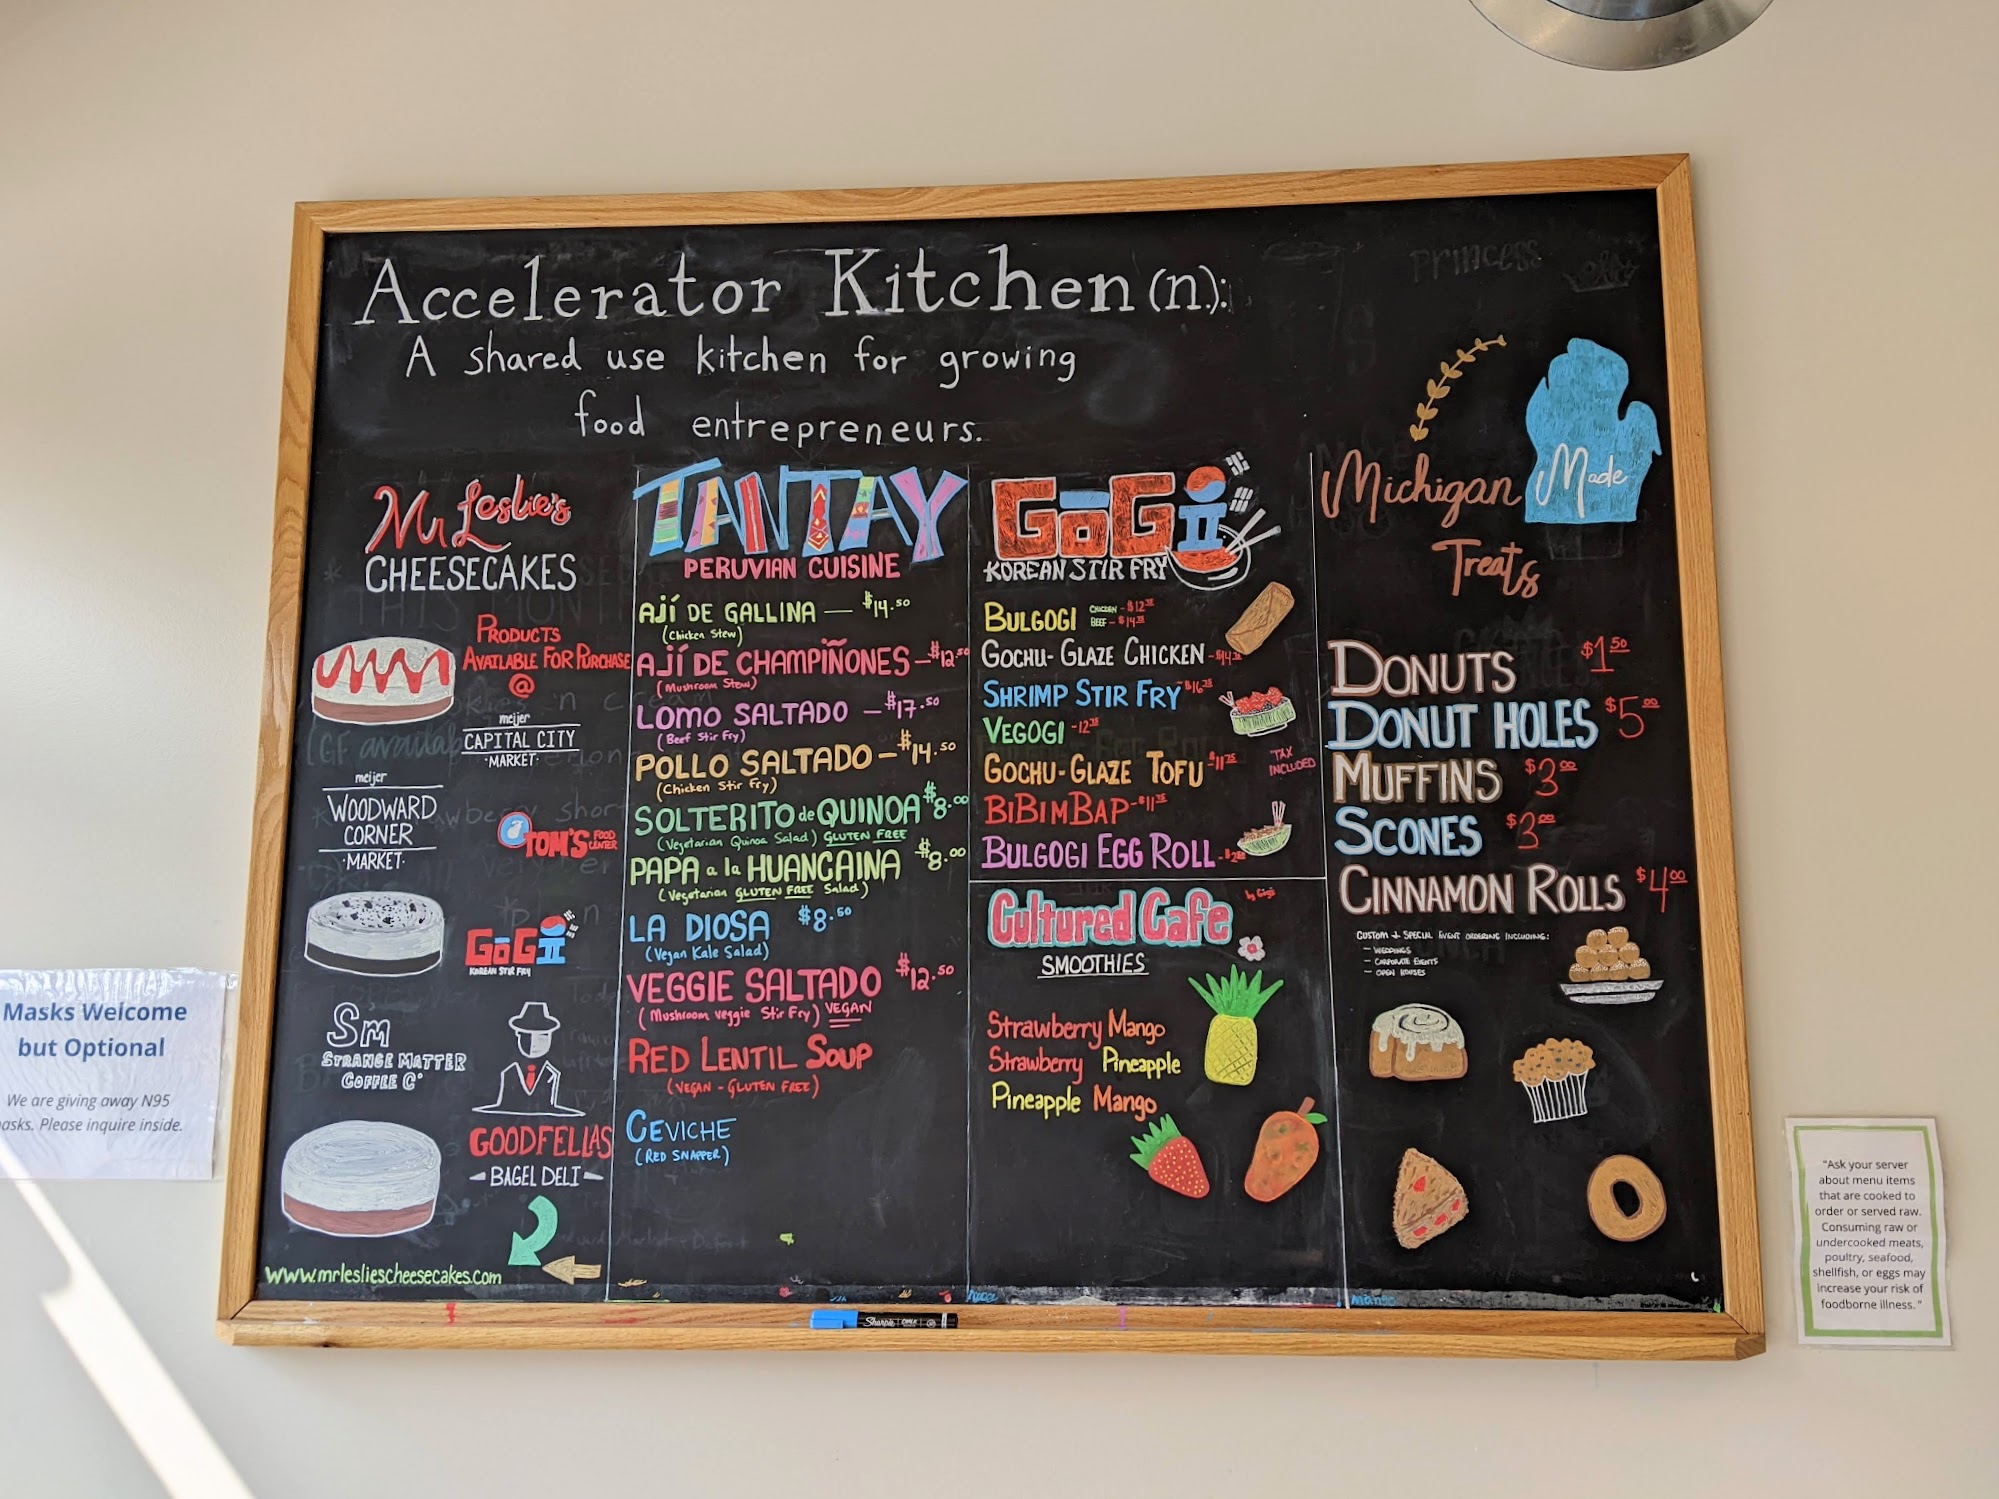 Accelerator Kitchen (n.):
A shared use kitchen for growing
food entrepreneurs.
Mr Leslie's
CHEESECAKES
PRODUCTS
AVAILABLE FOR PURCHASE
@
meijer
CAPITAL CITY
·MARKET·
meijer
WOODWARD
CORNER
·MARKET·
TOM'S FOOD
CENTER
GōGi
KOREAN STIR FRY
Sm
STRANGE MATTER
COFFEE Cº
GOODFELLAS
-BAGEL DELI-
www.mrlesliescheesecakes.com
TANTAY
PERUVIAN CUISINE
AJÍ DE GALLINA — $14.50
(Chicken Stew)
AJÍ DE CHAMPIÑONES - $12.50
(Mushroom Stew)
LOMO SALTADO - $17.50
(Beef Stir Fry)
POLLO SALTADO - $14.50
(Chicken Stir Fry)
SOLTERITO de QUINOA $8.00
(Vegetarian Quinoa Salad) GLUTEN FREE
PAPA a la HUANCAINA $8.00
(Vegetarian GLUTEN FREE Salad)
LA DIOSA $8.50
(Vegan Kale Salad)
VEGGIE SALTADO $12.50
(Mushroom veggie Stir Fry) VEGAN
RED LENTIL SOUP
(VEGAN - GLUTEN FREE)
CEVICHE
(RED SNAPPER)
GōGi
KOREAN STIR FRY
BULGOGI CHICKEN - $12
BEEF - $14
GOCHU-GLAZE CHICKEN
SHRIMP STIR FRY $16
VEGOGI -12
GOCHU-GLAZE TOFU $11.75
TAX
INCLUDED
BIBIMBAP - $11
BULGOGI EGG ROLL
Cultured Cafe by Gogi
SMOOTHIES
Strawberry Mango
Strawberry Pineapple
Pineapple Mango
Princess
Michigan Made
Treats
DONUTS $1.50
DONUT HOLES $5.00
MUFFINS $3.00
SCONES $3.00
CINNAMON ROLLS $4.00
CUSTOM & SPECIAL EVENT ORDERING INCLUDING:
- WEDDINGS
- CORPORATE EVENTS
- OPEN HOUSES
mango
Sharpie
Masks Welcome
but Optional
We are giving away N95
masks. Please inquire inside.
"Ask your server
about menu items
that are cooked to
order or served raw.
Consuming raw or
undercooked meats,
poultry, seafood,
shellfish, or eggs may
increase your risk of
foodborne illness."